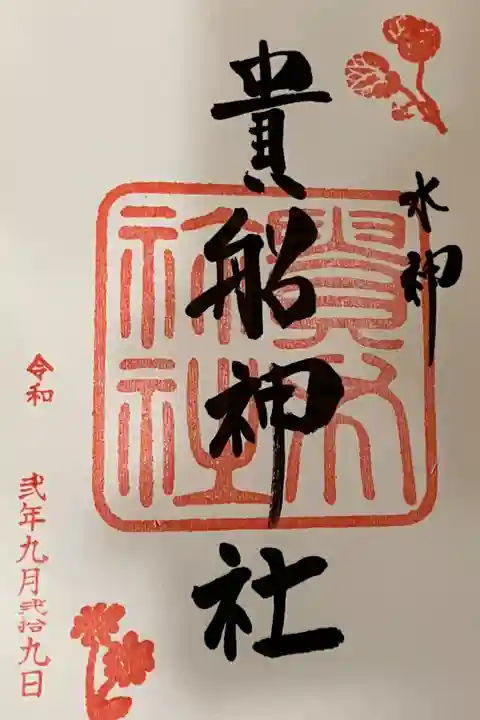 水神
貴船神社
令和 弐年九月弐拾九日